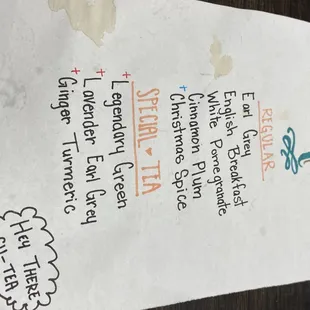 REGULAR
Earl Grey
English Breakfast
White Pomegranate
Cinnamon Plum
+ Christmas Spice
SPECIAL ♥ TEA
+ Legendary Green
+ Lavender Earl Grey
+ Ginger Turmeric
HEY THERE
-TEA